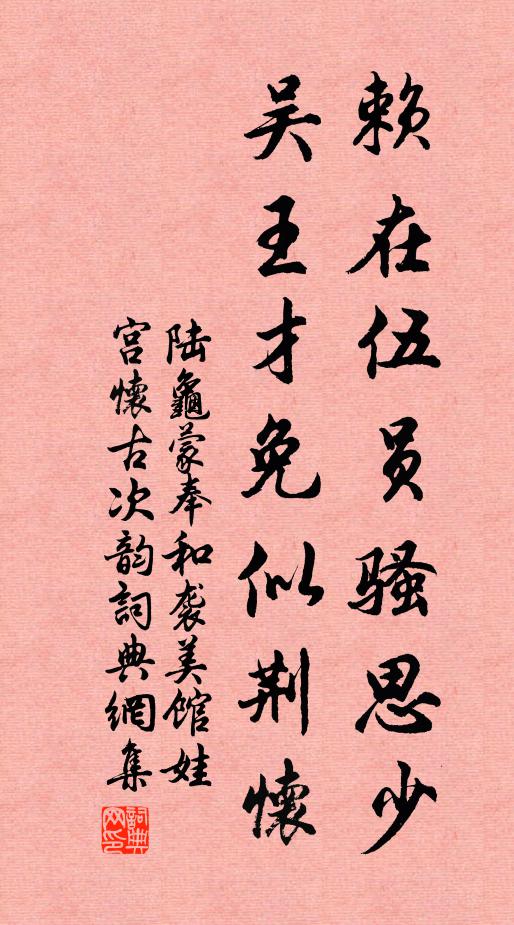 赖在伍员骚思少
吴王才免似荆懷
陆龜蒙奉和袭美馆娃
宫懷古次韵詞典網集
詞典
网印